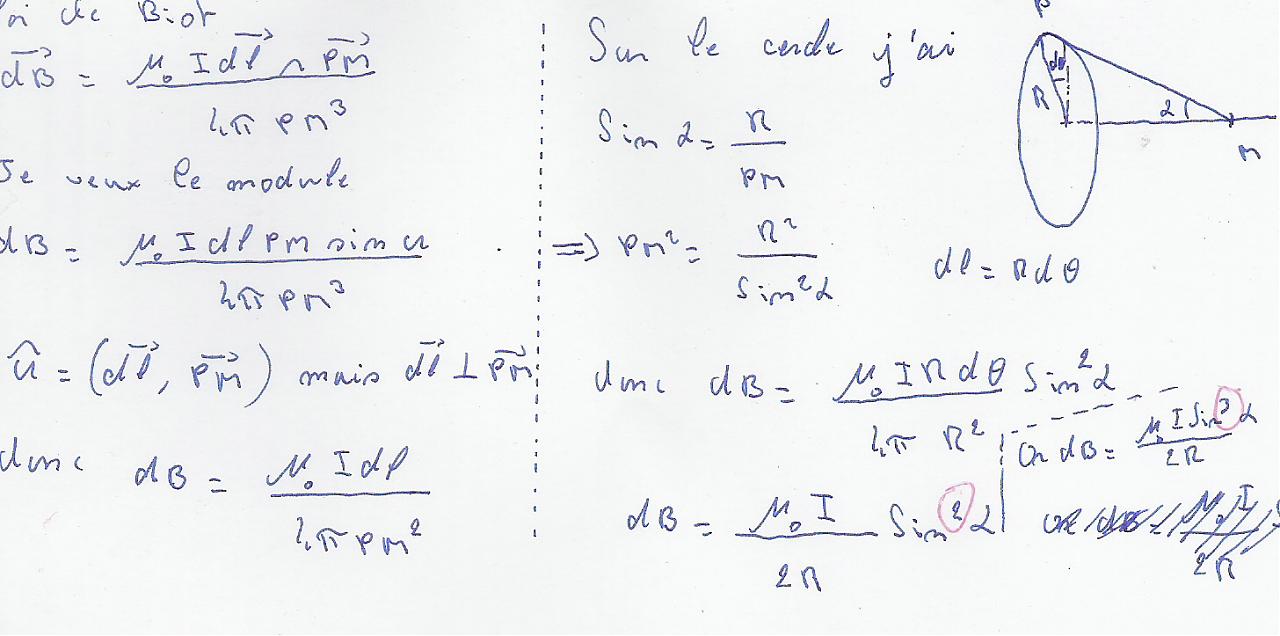 de Biot
dB = μ₀ I dl ∧ PM / 4π PM³
Je veux le module
dB = μ₀ I dl PM sin u / 4π PM³
û = (dl, PM) mais dl ⊥ PM
donc dB = μ₀ I dl / 4π PM²
Sur le cercle j'ai
Sin α = R / PM
=> PM² = R² / Sin² α
dl = R dθ
donc dB = μ₀ I R dθ Sin² α / 4π R²
Or dB = μ₀ I Sin³ α / 2R
dB = μ₀ I / 2R Sin² α
P
dθ
R
α
M